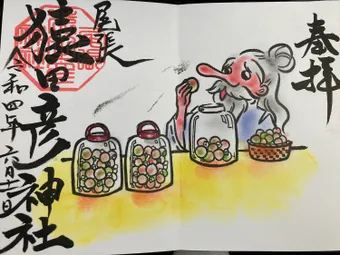 奉拝
尾張
猿田彦神社
令和四年六月十一日